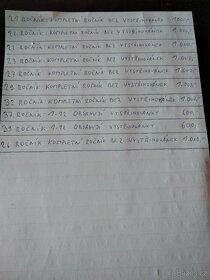 21 ROČNÍK KOMPLETNÍ ROČNÍK BEZ VYSTŘIHOVÁNEK 1.000,-
22 ROČNÍK KOMPLETNÍ ROČNÍK BEZ VYSTŘIHOVÁNEK 1.000,-
ROČNÍK KOMPLETNÍ ROČNÍK BEZ VYSTŘIHOVÁNEK 1.000,-
23 ROČNÍK KOMPLETNÍ ROČNÍK BEZ VYSTŘIHOVÁNEK 1.000,-
27 ROČNÍK KOMPLETNÍ ROČNÍK BEZ VYSTŘIHOVÁNEK 1.000,-
29 ROČNÍK KOMPLETNÍ ROČNÍK BEZ VYSTŘIHOVÁNEK 1.000,-
35 ROČNÍK KOMPLETNÍ ROČNÍK BEZ VYSTŘIHOVÁNEK 1.000,-
37 ROČNÍK 1-12 OBSAHUJ VYSTŘIHOVÁNKY 600,-
39 ROČNÍK 1-12 OBSAHUJ VYSTŘIHOVÁNKY 600,-
26 ROČNÍK KOMPLETNÍ ROČNÍK BEZ VYSTŘIHOVÁNEK 1.000,-